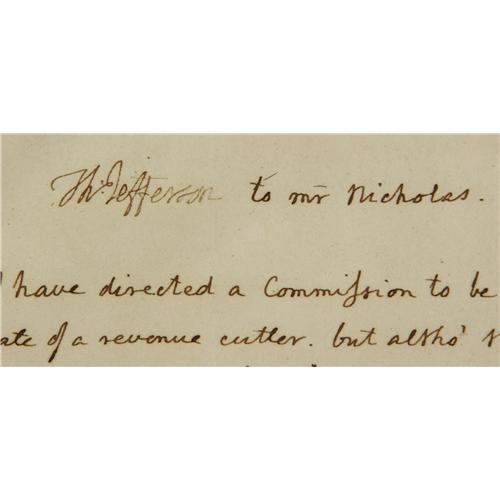 Th: Jefferson to mr Nicholas.
I have directed a Commission to be
ate of a revenue cutter. but altho'